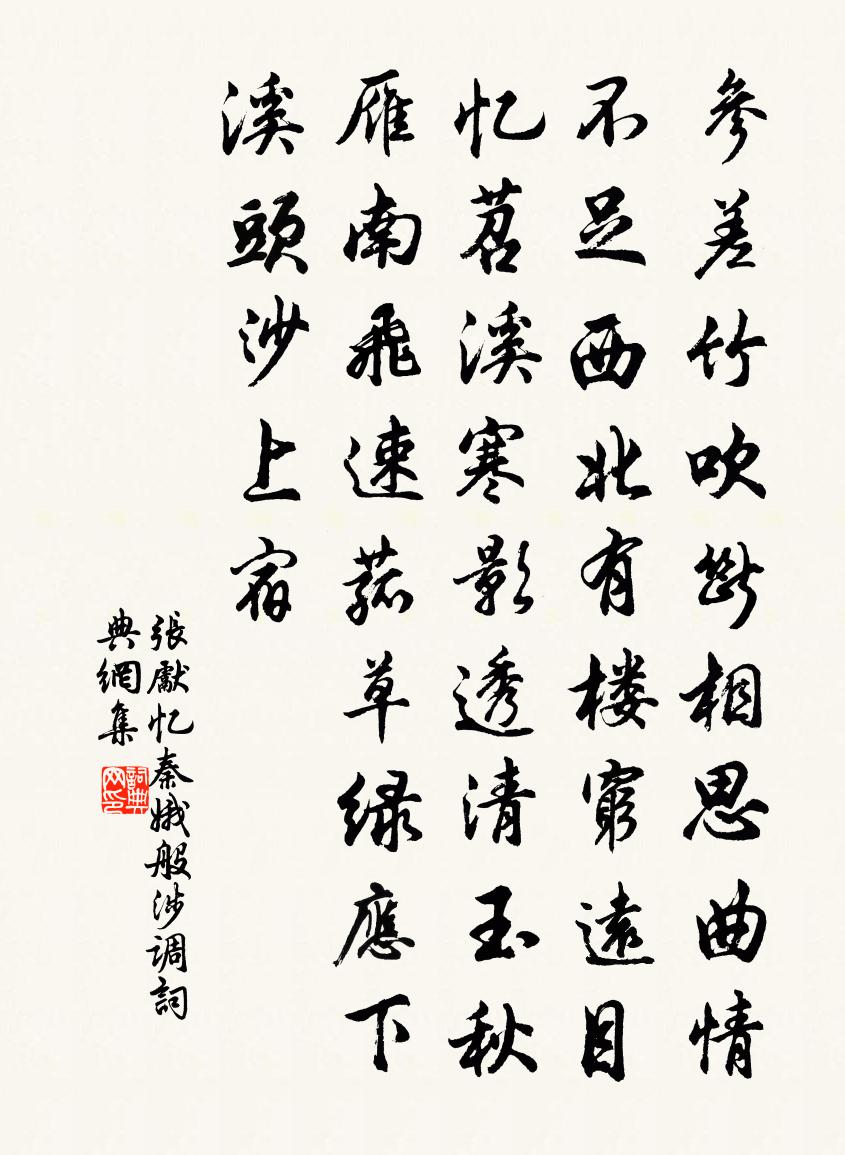 參差竹吹斷相思曲情
不足西北有楼窮遠目
忆苕溪寒影透清玉秋
雁南飛速菰草绿應下
溪頭沙上宿
張獻忆秦娥般涉调詞
典網集
詞典
网印